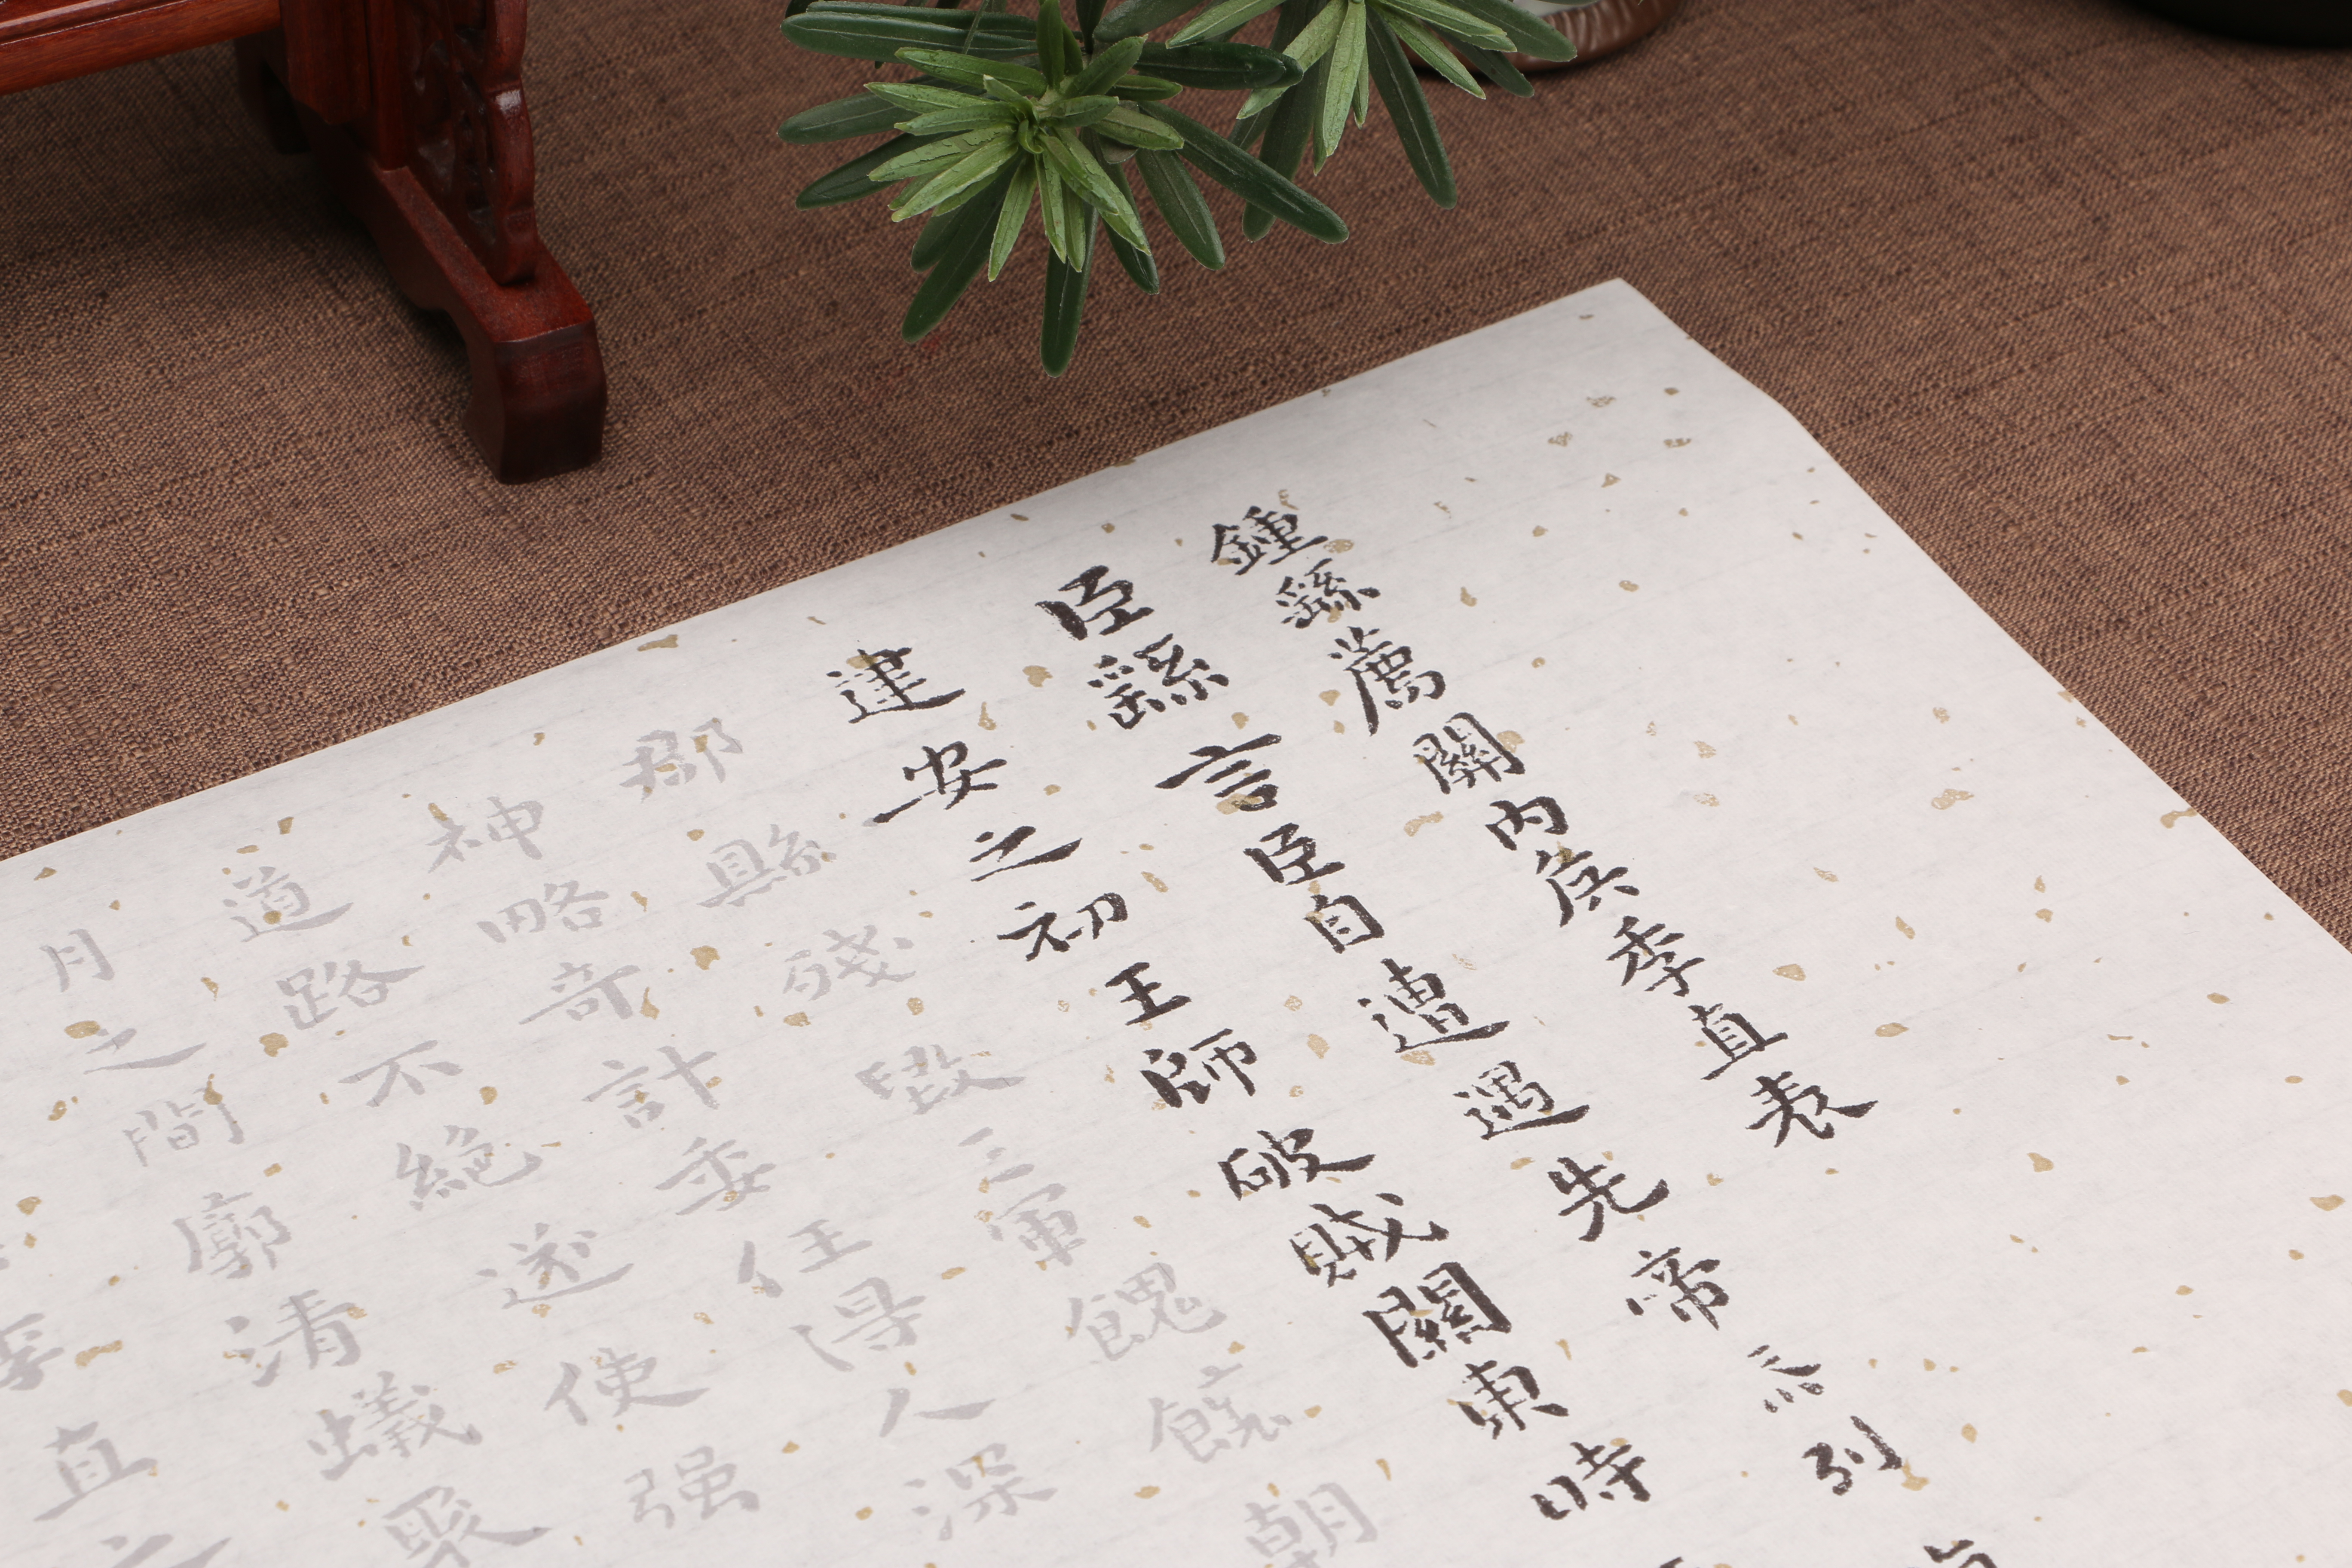 鍾繇薦關内侯季直表
臣繇言臣自遭遇先帝忝列
建安之初王師破賊關東時
郡縣殘毀三軍餽饟朝
神略奇計委任得人深
道路不絶遂使强
月之間廓清蟻聚
季直